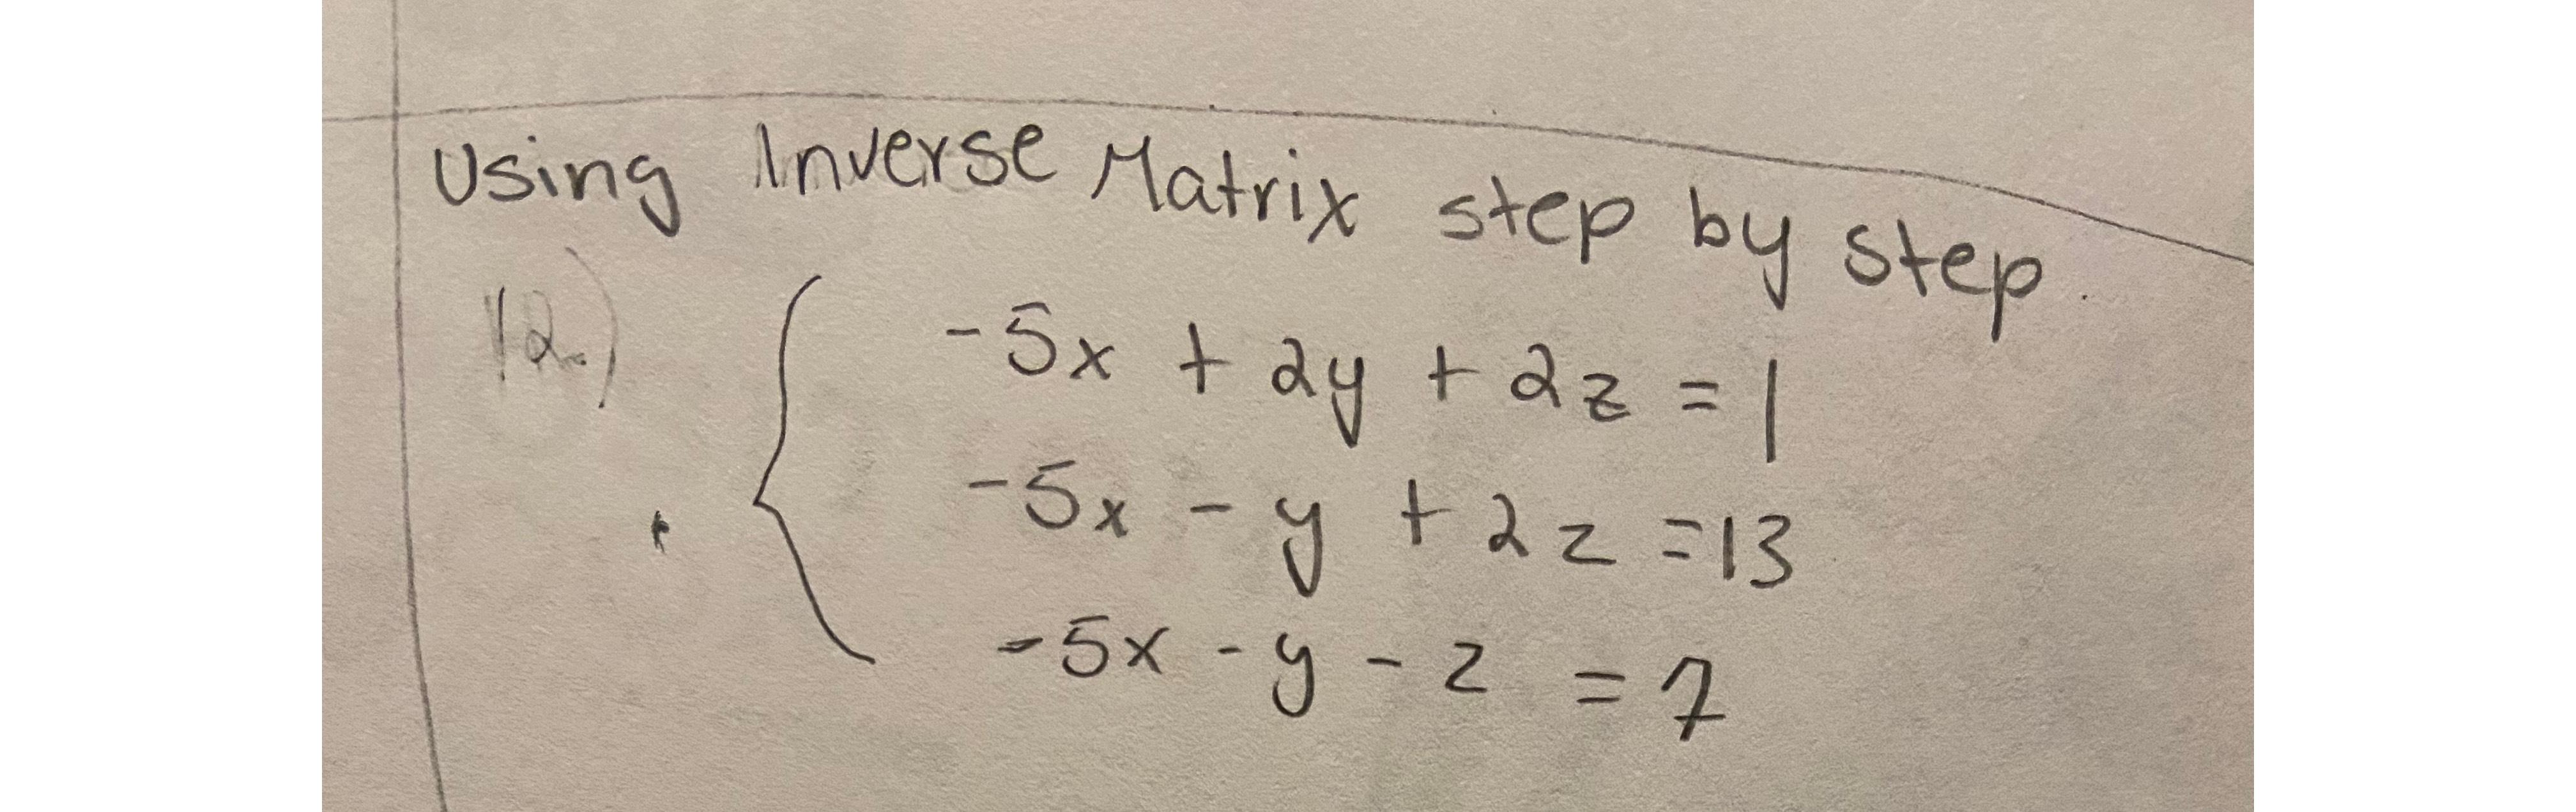 Using Inverse Matrix step by step.
12.)
-5x + 2y + 2z = 1
-5x - y + 2z = 13
-5x - y - z = 7